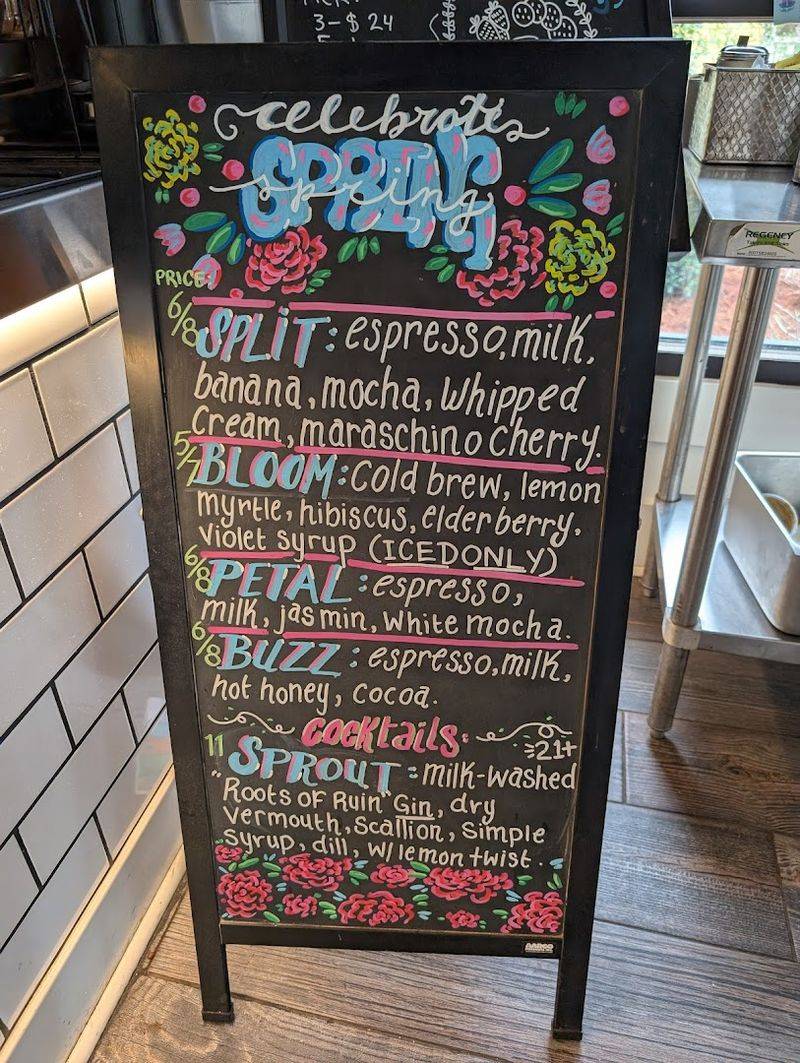 3-$24
celebrate
SPRING
spring
PRICE:
6/8 SPLIT: espresso, milk,
banana, mocha, whipped
cream, maraschino cherry.
5/7 BLOOM: cold brew, lemon
myrtle, hibiscus, elderberry.
violet syrup (ICED ONLY)
6/8 PETAL: espresso,
milk, jasmin, white mocha.
6/8 BUZZ: espresso, milk,
hot honey, cocoa.
cocktails: 21+
11 SPROUT: milk-washed
"Roots of Ruin" Gin, dry
vermouth, scallion, simple
syrup, dill, w/ lemon twist.
AARCO
REGENCY